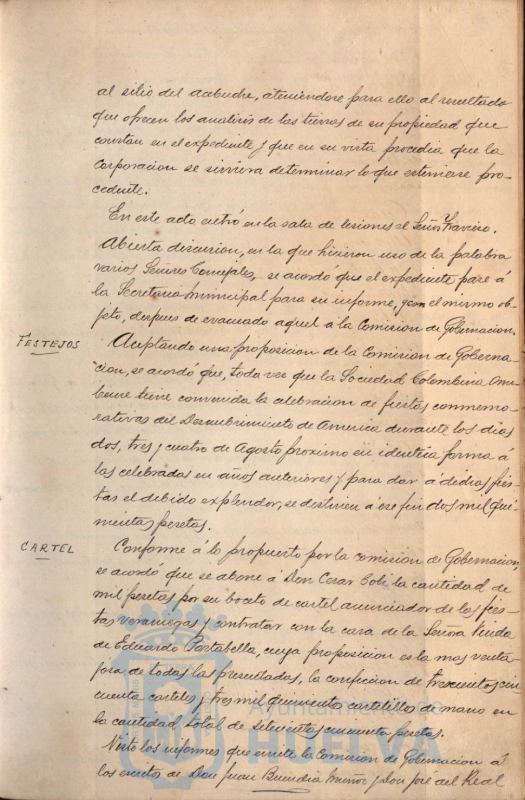 al sitio del acebuche, ateniendose para ello al resultado
que ofrecen los analisis de las tierras de su propiedad que
constan en el expediente y que en su vista procedia que la
Corporacion se sirviera determinar lo que estimase pro-
cedente.
En este acto entró en la sala de sesiones el Señor
Abierta discusion, en la que hicieron uso de la palabra
varios Señores Concejales, se acordó que el expediente pase á
la Secretaria municipal para su informe, y con el mismo ob-
jeto, despues de evacuado aquel á la Comision de Gobernacion.
FESTEJOS
Aceptando una proposicion de la Comision de Goberna-
cion, se acordó que, toda vez que la Sociedad Colombina Onu-
bense tiene convenida la celebracion de fiestas conmemo-
rativas del Descubrimiento de America durante los dias
dos, tres y cuatro de Agosto proximo en identica forma á
las celebradas en años anteriores y para dar á dichas fies-
tas el debido explendor, se destinen á ese fin dos mil qui-
nientas pesetas.
CARTEL
Conforme á lo propuesto por la comision de Gobernacion,
se acordó que se abone á Don Cesar la cantidad de
mil pesetas por su boceto de cartel anunciador de las fies-
tas veraniegas y contratar con la casa de la Señora Viuda
de Eduardo Portabella, cuya proposicion es la mas venta-
josa de todas las presentadas, la confeccion de trescientos cin
cuenta carteles y tres mil quinientos cartelillos de mano en
la cantidad total de setecientas cincuenta pesetas.
Visto los informes que emite la Comision de Gobernacion á
los escritos de Don Juan Buendia Muñoz y Don José del Real
Ayuntamiento de
HUELVA